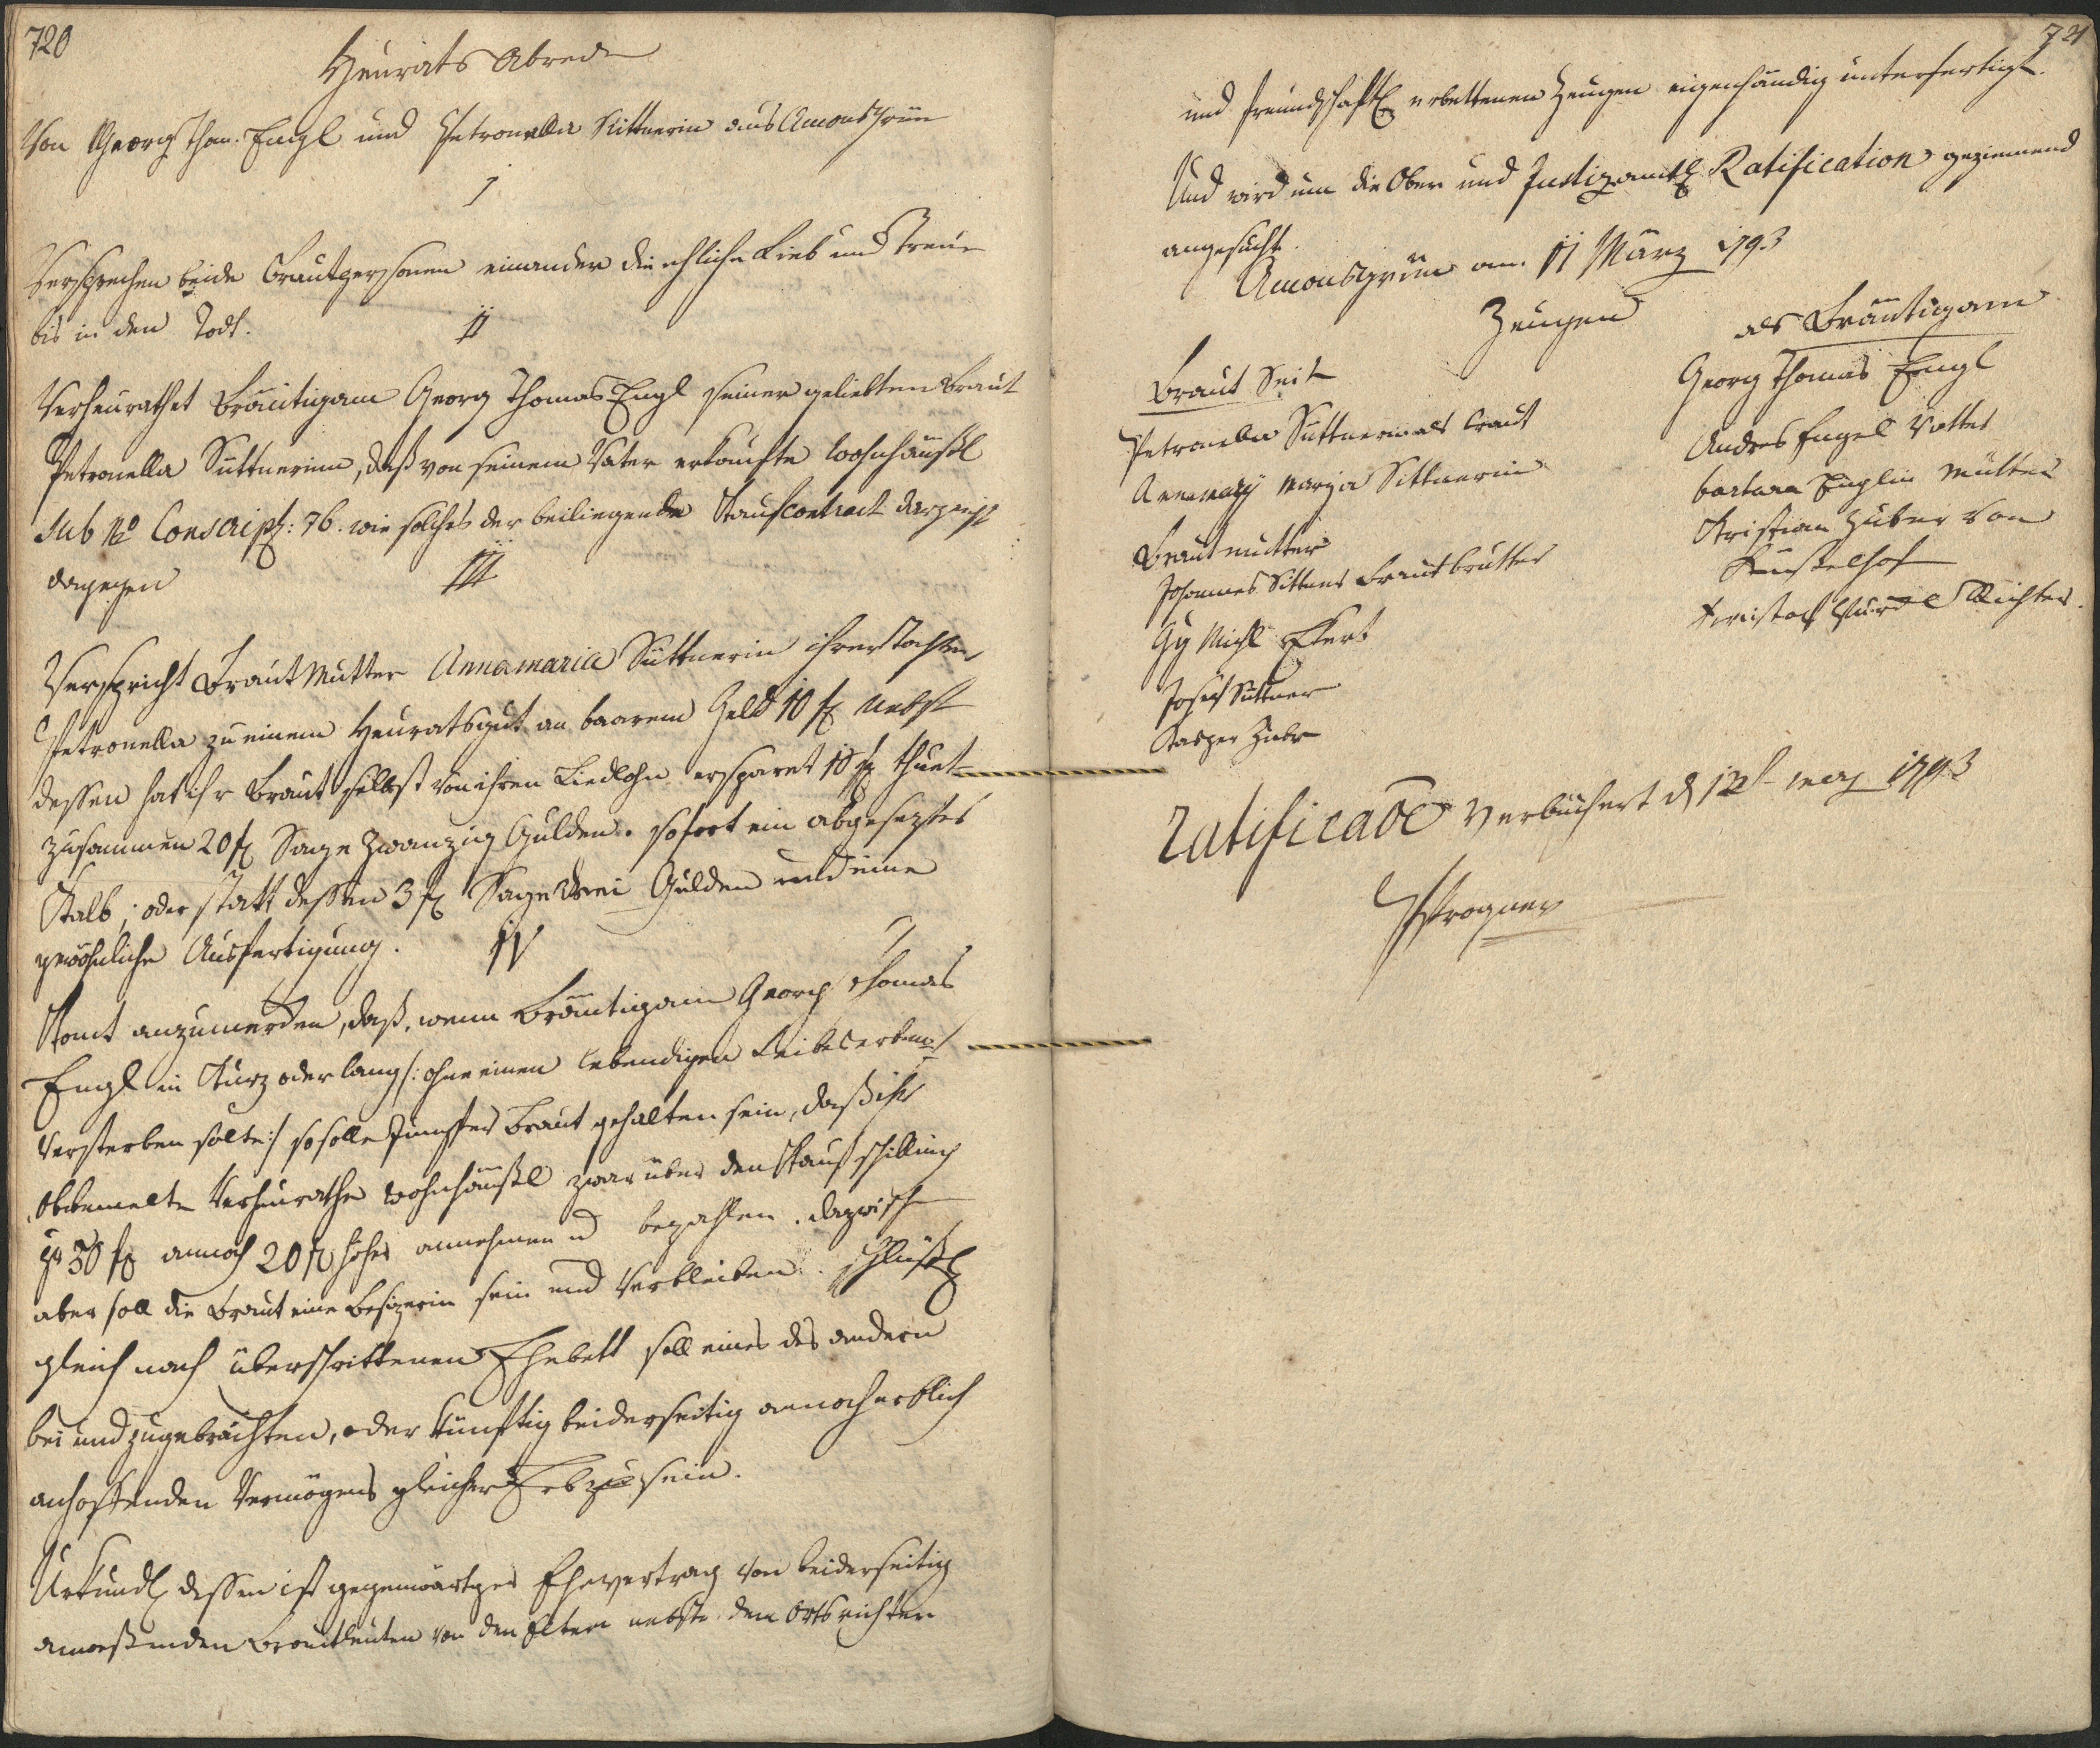 720
Heurats Abrede
Von Georg Thom. Engl und Petronella Sittnerin aus Amonsgrün
I
Versprechen beide Brautpersonen einander die ehliche Lieb und Treue
bis in den Todt.
II
Verheurathet Bräutigam Georg Thomas Engl seiner geliebten Braut
Petronella Süttnerinn, daß von seinem Vater erkaufte Wohnhäußl
sub No Conscript: 76. wie solches der beiliegende Kaufcontract darzeigt
dagegen
III
Verspricht Braut Mutter Annamaria Süttnerin ihrer Tochter
Petronella zu einem Heuratsgut an baarem Geld 10 f nebst
dessen hat ihr Braut selbst von ihren Liedlohn ersparet 10 f thuet
zusammen 20 f Sage Zwanzig Gulden. sofort ein abgeseztes
Kalb; oder statt dessen 3 f Sage Drei Gulden und eine
gewöhnliche Ausfertigung.
IV
Komt anzumerken, daß, wenn Bräutigam Georg Thomas
Engl in Kurz oder lang /: ohne einen lebendigen Leibeserben :/
Versterben solte :/ so solle Jungfer Braut gehalten sein, daß ihr
obbemelte Verheurathe Wohnhäußl zwar über den Kaufschilling
pr 50 f annoch 20 f höher annehmen und bezahlen. dazwisch
aber soll die Braut eine Besizerin sein und Verbleiben. schlüßl
gleich nach überschrittenen Ehebett soll eines des andern
bei und zugebrächten, oder künftig beiderseitig annoch erblich
anhoffenden Vermögens gleicher Erb zu sein.
Urkundl dessen ist gegenwärtiger Ehevertrag von beiderseitig
anwesenden Brautleuten von den Eltern nebst den Ortsrichter
721
und freundschaftl erbettenen Zeugen eigenhändig unterfertigt.
Und wird um die Ober und Justizamtl Ratification geziemend
angesucht.
Amonsgrün am 11 März 1793
Zeugen
Braut Seit
Petronella Süttnerin als Braut
Annamary Marja Sittnerin
Brautmutter
Johannes Sittner Brautbrutter
Gg Michl Ekert
Josef Süttner
Kasper Zuber
als Bräutigam
Georg Thomas Engl
Andres Engel Vatter
barbara Englin Mutter
Kristian Huber von
Kristof Richter.
Ratificatur Verbüchert d 12t merz 1793
Progner